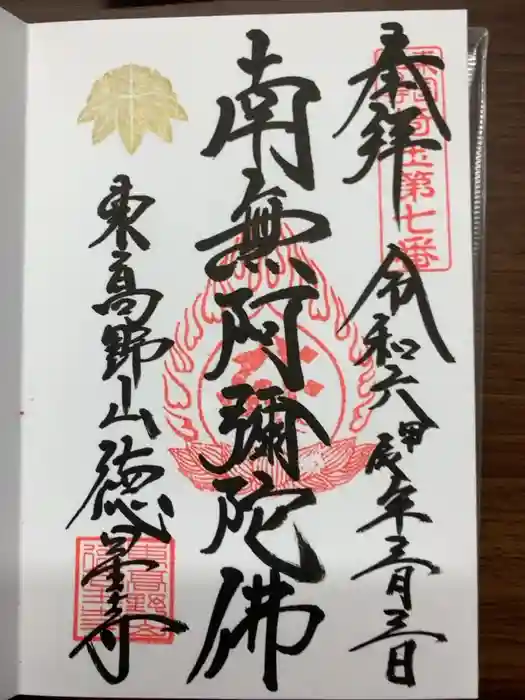 奉拝
埼玉第七番
令和六甲辰年三月三日
南無阿彌陀佛
東高野山徳星寺